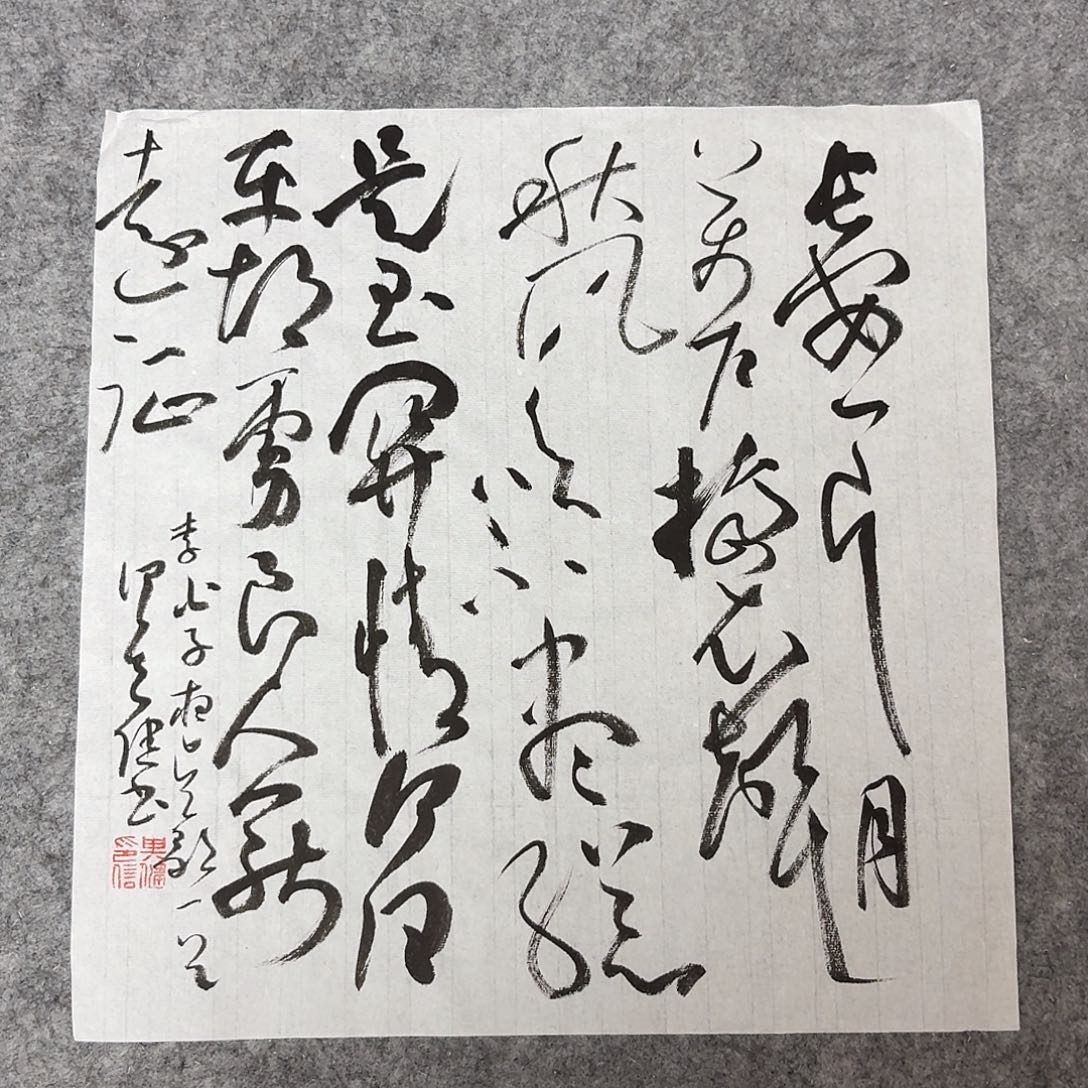 長安一片月
萬戶搗衣聲
秋風吹不盡總
是玉關情何日
平胡虜良人罷
遠征
李白子夜吴歌一首
健书